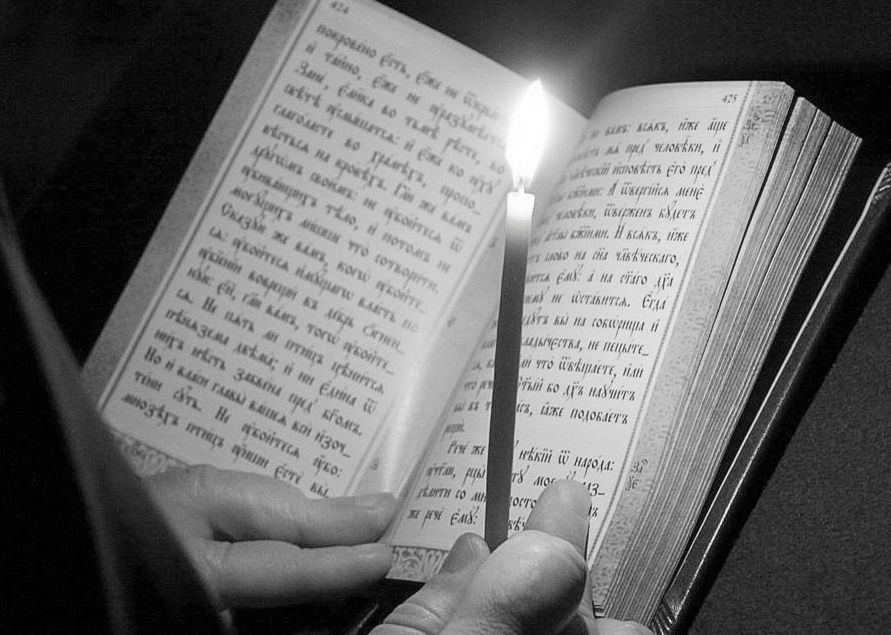 424
покровено є҆сть, є҆же не ѿкры
и҆ тайно, є҆же не ᲂу҆разꙋмѣетсѧ
Зане, є҆лика во тьмѣ рѣсте, во
свѣтѣ ᲂу҆слышатсѧ: и҆ є҆же ко ᲂу҆хꙋ
глаголасте во храмѣхъ, пропо_
вѣстсѧ на кровѣхъ. Гл҃ю же вамъ
дрꙋгѡмъ своимъ: не ᲂу҆бойтесѧ ѿ
ᲂу҆бивающихъ тѣло, и҆ потомъ не
могꙋщихъ лишше что сотворити.
Сказꙋю же вамъ, когѡ ᲂу҆бойте_
сѧ: ᲂу҆бойтесѧ и҆мꙋщагѡ власть по
ᲂу҆бїенїи воврещи въ дебрь ѻ҆гнен_
нꙋю: є҆й, гл҃ю вамъ, тогѡ ᲂу҆бойте_
сѧ. Не пѧть ли птицъ цѣнитсѧ
пѣнѧзема двѣма; и҆ ни є҆дина ѿ
нихъ нѣсть забвена пред̾ бг҃омъ.
Но и҆ власи главы вашеѧ вси и҆зоч_
тени сꙋть. Не ᲂу҆бойтесѧ ᲂу҆бо:
мнозѣхъ птицъ ᲂу҆нши є҆сте вы.
425
же вамъ: всѧкъ, и҆же а҆ще
и҆сповѣсть мѧ пред̾ человѣки, и҆
человѣческїй и҆сповѣсть є҆го пред̾
бж҃їими: А҆ ѿвергїйсѧ менє
человѣки, ѿверженъ бꙋдетъ
а҆гг҃лы бж҃їими. И҆ всѧкъ, и҆же
слово на сн҃а чл҃вѣческаго,
є҆мꙋ: а҆ на ст҃аго дх҃а
не ѡ҆ставитсѧ. Є҆гда
вы на собѡрища и҆
владычества, не пецыте_
и҆ли что ѿвѣщаете, и҆ли
ст҃ый бо дх҃ъ наꙋчитъ
вы въ т часъ, ꙗ҆же подобаетъ
Рече же нѣкїй ѿ народа:
ᲂу҆чт҃лю, рцы братꙋ моемꙋ и҆з_
со мною достоѧнїе
же рече є҆мꙋ: